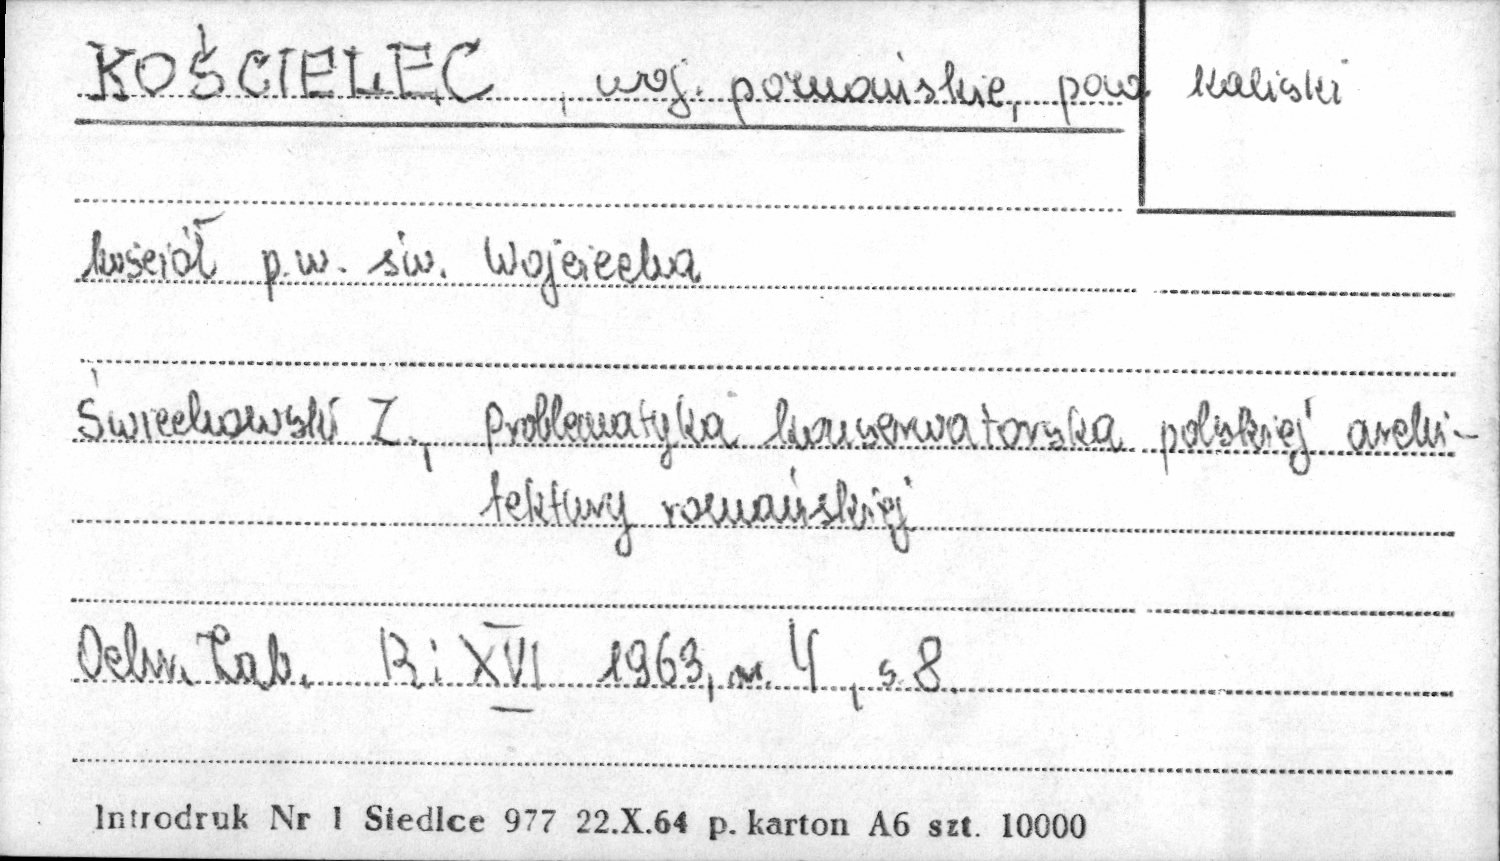 KOŚCIELEC, woj. poznańskie, pow. kaliski
kościół p.w. św. Wojciecha
Świechowski Z., Problematyka konserwatorska polskiej archi-
tektury romańskiej
Ochr. Zab. R: XVI 1963, nr. 4, s. 8.
Introdruk Nr 1 Siedlce 977 22.X.64 p. karton A6 szt. 10000